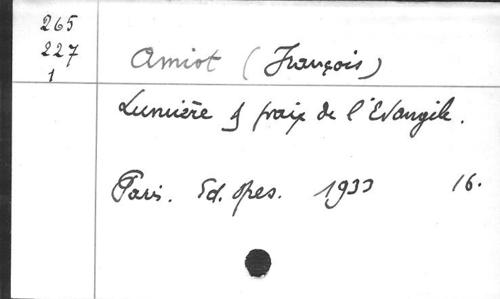 265
227
1
Amiot (François)
Lumière & paix de l'Evangile.
Paris. Ed. Spes. 1933 16.